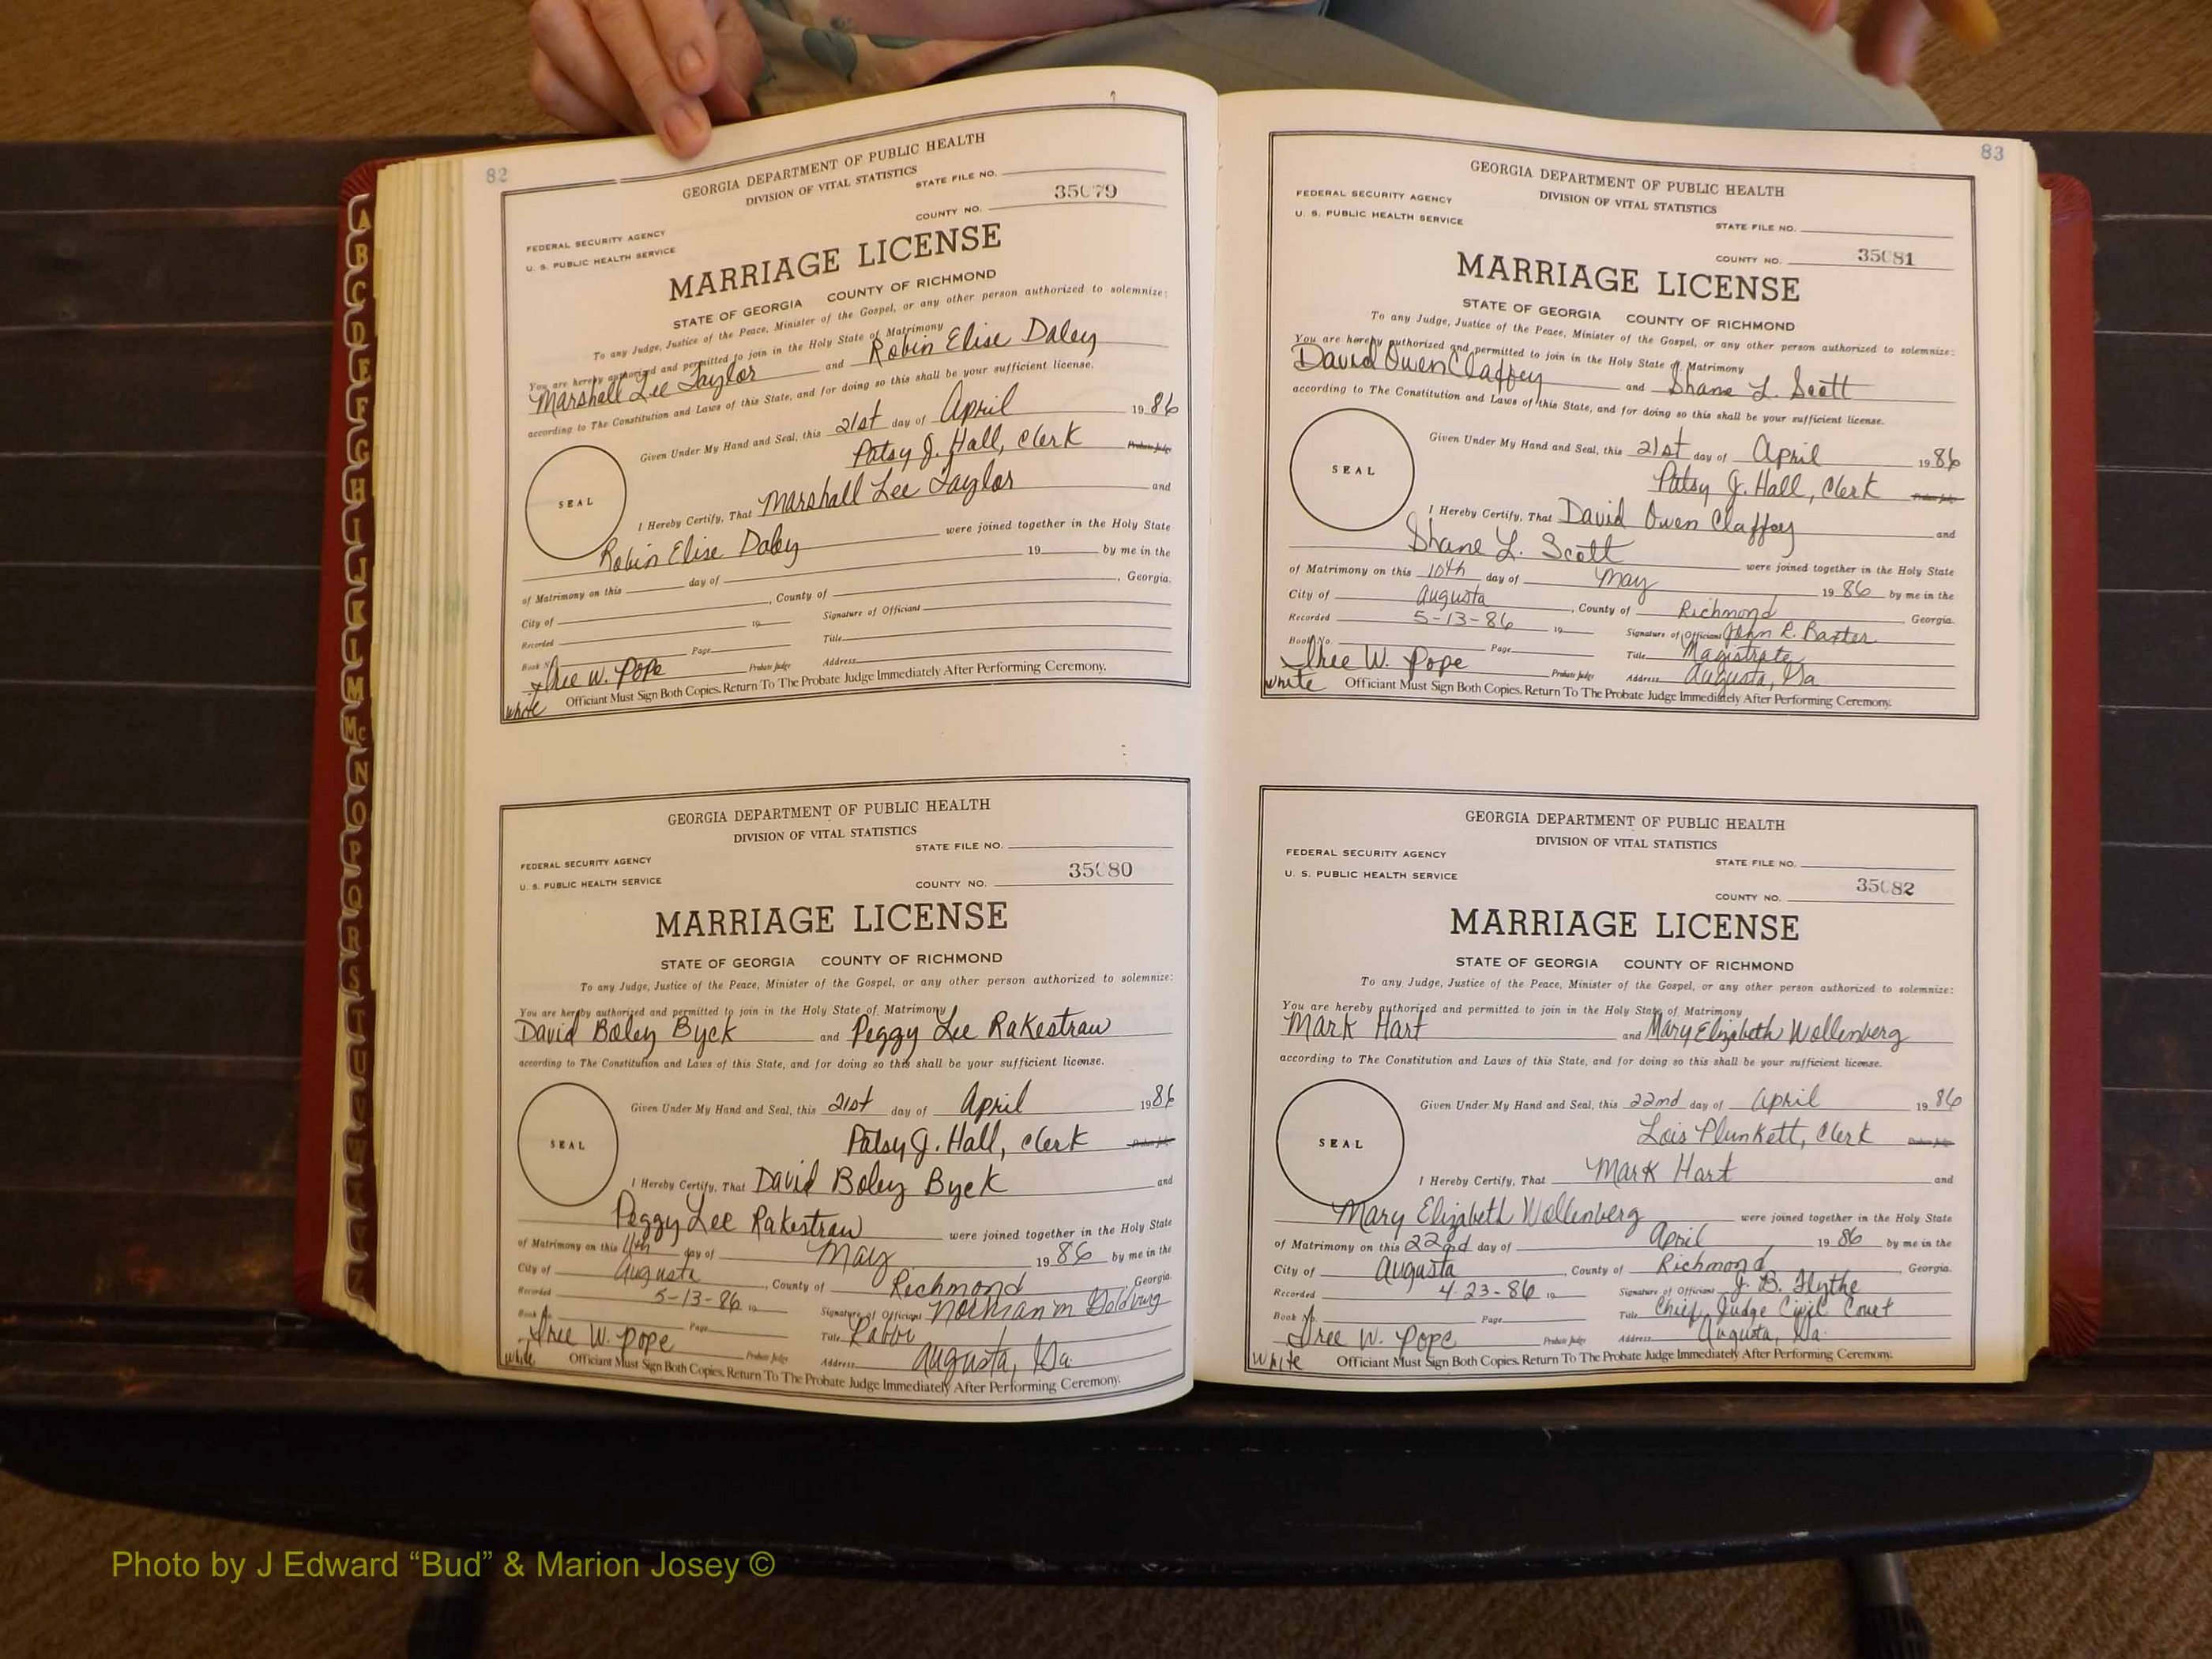 82
GEORGIA DEPARTMENT OF PUBLIC HEALTH
DIVISION OF VITAL STATISTICS
STATE FILE NO.
35079
COUNTY NO.
FEDERAL SECURITY AGENCY
U. S. PUBLIC HEALTH SERVICE
MARRIAGE LICENSE
STATE OF GEORGIA COUNTY OF RICHMOND
To any Judge, Justice of the Peace, Minister of the Gospel, or any other person authorized to solemnize:
You are hereby authorized and permitted to join in the Holy State of Matrimony
Marshall Lee Taylor and Robin Elise Daley
according to The Constitution and Laws of this State, and for doing so this shall be your sufficient license.
Given Under My Hand and Seal, this 21st day of April 1986
Patsy J. Hall, Clerk Probate Judge
SEAL
I Hereby Certify, That Marshall Lee Taylor and
Robin Elise Daley were joined together in the Holy State
of Matrimony on this day of 19 by me in the
City of , County of , Georgia.
Recorded 19 Signature of Officiant
Book No. Page Title
W. Pope Probate Judge Address
white Officiant Must Sign Both Copies. Return To The Probate Judge Immediately After Performing Ceremony.
GEORGIA DEPARTMENT OF PUBLIC HEALTH
DIVISION OF VITAL STATISTICS
STATE FILE NO.
FEDERAL SECURITY AGENCY
35080
U. S. PUBLIC HEALTH SERVICE
COUNTY NO.
MARRIAGE LICENSE
STATE OF GEORGIA COUNTY OF RICHMOND
To any Judge, Justice of the Peace, Minister of the Gospel, or any other person authorized to solemnize:
You are hereby authorized and permitted to join in the Holy State of Matrimony
David Boley Byck and Peggy Lee Rakestraw
according to The Constitution and Laws of this State, and for doing so this shall be your sufficient license.
Given Under My Hand and Seal, this 21st day of April 1986
Patsy J. Hall, Clerk Probate Judge
SEAL
I Hereby Certify, That David Boley Byck and
Peggy Lee Rakestraw were joined together in the Holy State
of Matrimony on this 11th day of May 1986 by me in the
City of Augusta, County of Richmond Georgia.
Recorded 5-13-86 19 Signature of Officiant Norman M Goldburg
Book No. Page Title Rabbi
W. Pope Probate Judge Address Augusta, Ga.
white Officiant Must Sign Both Copies. Return To The Probate Judge Immediately After Performing Ceremony.
83
GEORGIA DEPARTMENT OF PUBLIC HEALTH
FEDERAL SECURITY AGENCY DIVISION OF VITAL STATISTICS
U. S. PUBLIC HEALTH SERVICE
STATE FILE NO.
35081
COUNTY NO.
MARRIAGE LICENSE
STATE OF GEORGIA COUNTY OF RICHMOND
To any Judge, Justice of the Peace, Minister of the Gospel, or any other person authorized to solemnize:
You are hereby authorized and permitted to join in the Holy State of Matrimony
David Owen Claffey and Shane L. Scott
according to The Constitution and Laws of this State, and for doing so this shall be your sufficient license.
Given Under My Hand and Seal, this 21st day of April 1986
Patsy J. Hall, Clerk Probate Judge
SEAL
I Hereby Certify, That David Owen Claffey and
Shane L. Scott were joined together in the Holy State
of Matrimony on this 10th day of May 1986 by me in the
City of Augusta, County of Richmond Georgia.
Recorded 5-13-86 19 Signature of Officiant John R. Baxter
Book No. Page Title Magistrate
W. Pope Probate Judge Address Augusta, Ga
white Officiant Must Sign Both Copies. Return To The Probate Judge Immediately After Performing Ceremony.
GEORGIA DEPARTMENT OF PUBLIC HEALTH
DIVISION OF VITAL STATISTICS
FEDERAL SECURITY AGENCY
STATE FILE NO.
U. S. PUBLIC HEALTH SERVICE
35082
COUNTY NO.
MARRIAGE LICENSE
STATE OF GEORGIA COUNTY OF RICHMOND
To any Judge, Justice of the Peace, Minister of the Gospel, or any other person authorized to solemnize:
You are hereby authorized and permitted to join in the Holy State of Matrimony
Mark Hart and Mary Elizabeth Wollenberg
according to The Constitution and Laws of this State, and for doing so this shall be your sufficient license.
Given Under My Hand and Seal, this 22nd day of April 1986
Lois Plunkett, Clerk Probate Judge
SEAL
I Hereby Certify, That Mark Hart and
Mary Elizabeth Wollenberg were joined together in the Holy State
of Matrimony on this 22nd day of April 1986 by me in the
City of Augusta, County of Richmond, Georgia.
Recorded 4-23-86 19 Signature of Officiant J. B. Flythe
Book No. Page Title Chief Judge Civil Court
W. Pope Probate Judge Address Augusta, Ga.
white Officiant Must Sign Both Copies. Return To The Probate Judge Immediately After Performing Ceremony.
A
B
C
D
E
F
G
H
I
J
K
L
M
Mc
N
O
P
Q
R
S
T
U
V
W
X
Y
Z
Photo by J Edward “Bud” & Marion Josey ©